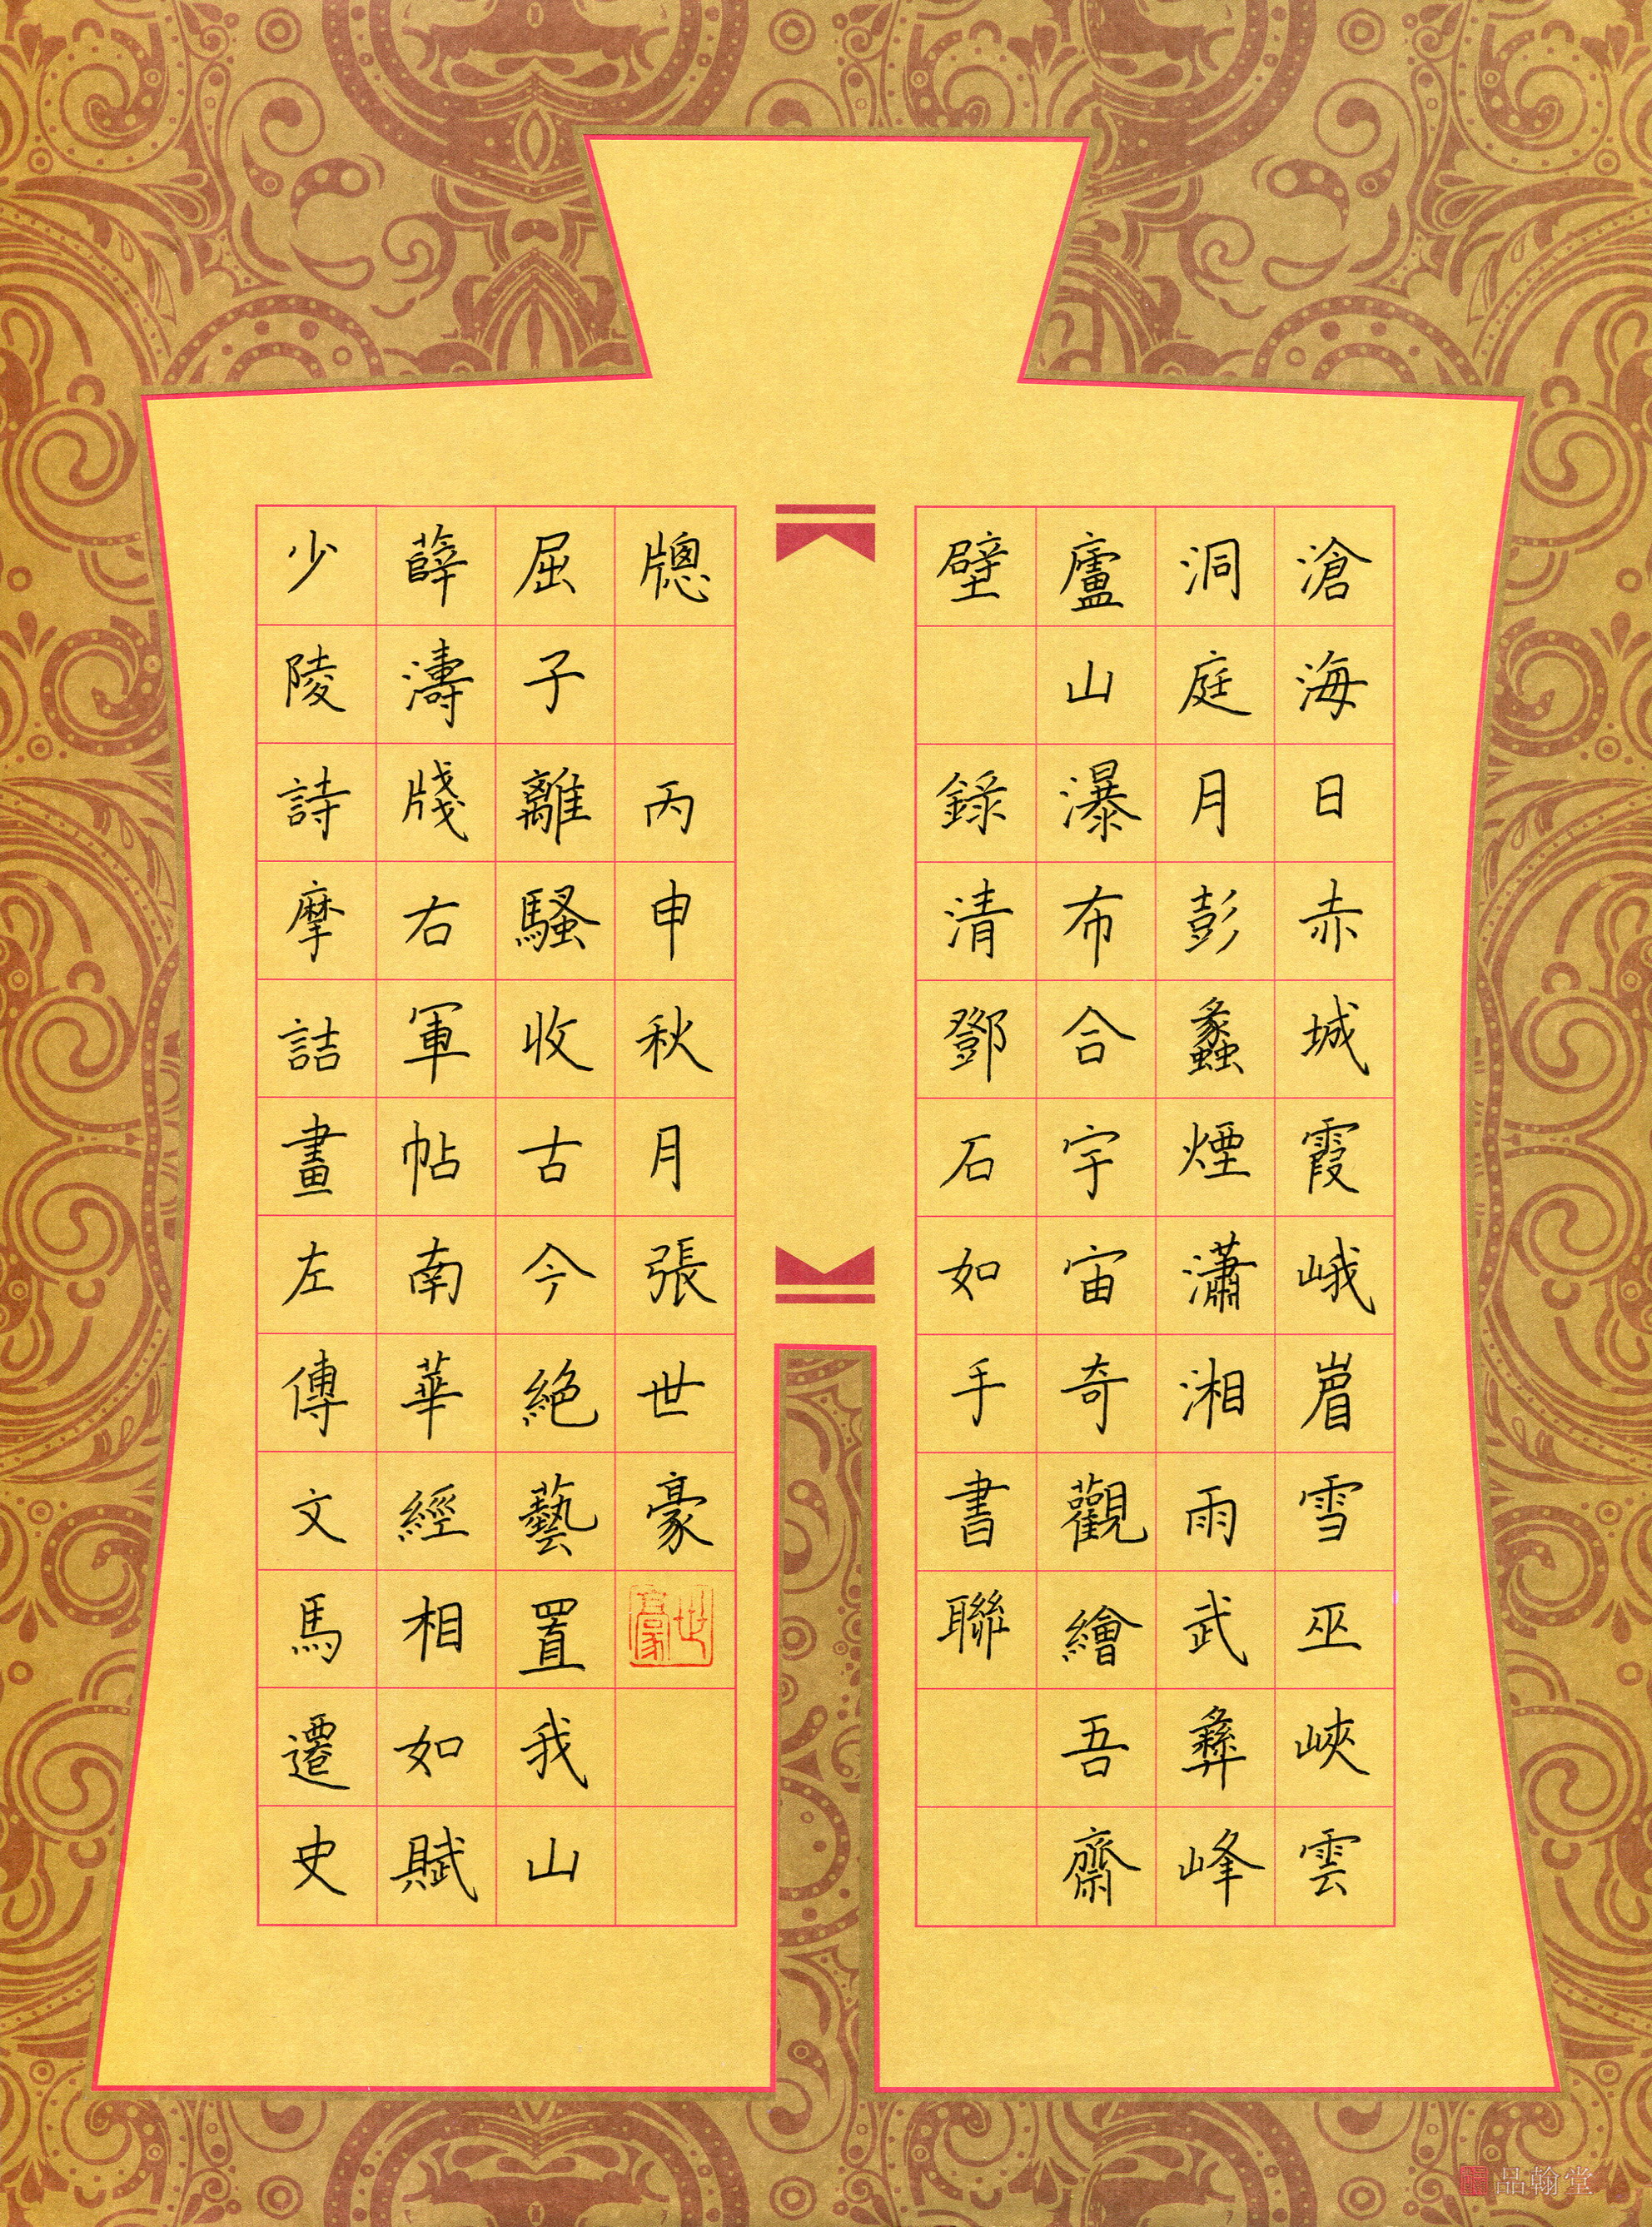 滄海日赤城霞峨嵋雪巫峽雲
洞庭月彭蠡煙瀟湘雨武彝峰
廬山瀑布合宇宙奇觀繪吾齋
壁 錄清鄧石如手書聯
少陵詩摩詰畫左傳文馬遷史
薛濤牋右軍帖南華經相如賦
屈子離騷收古今絕藝置我山
牕 丙申秋月張世豪
世豪
品翰堂